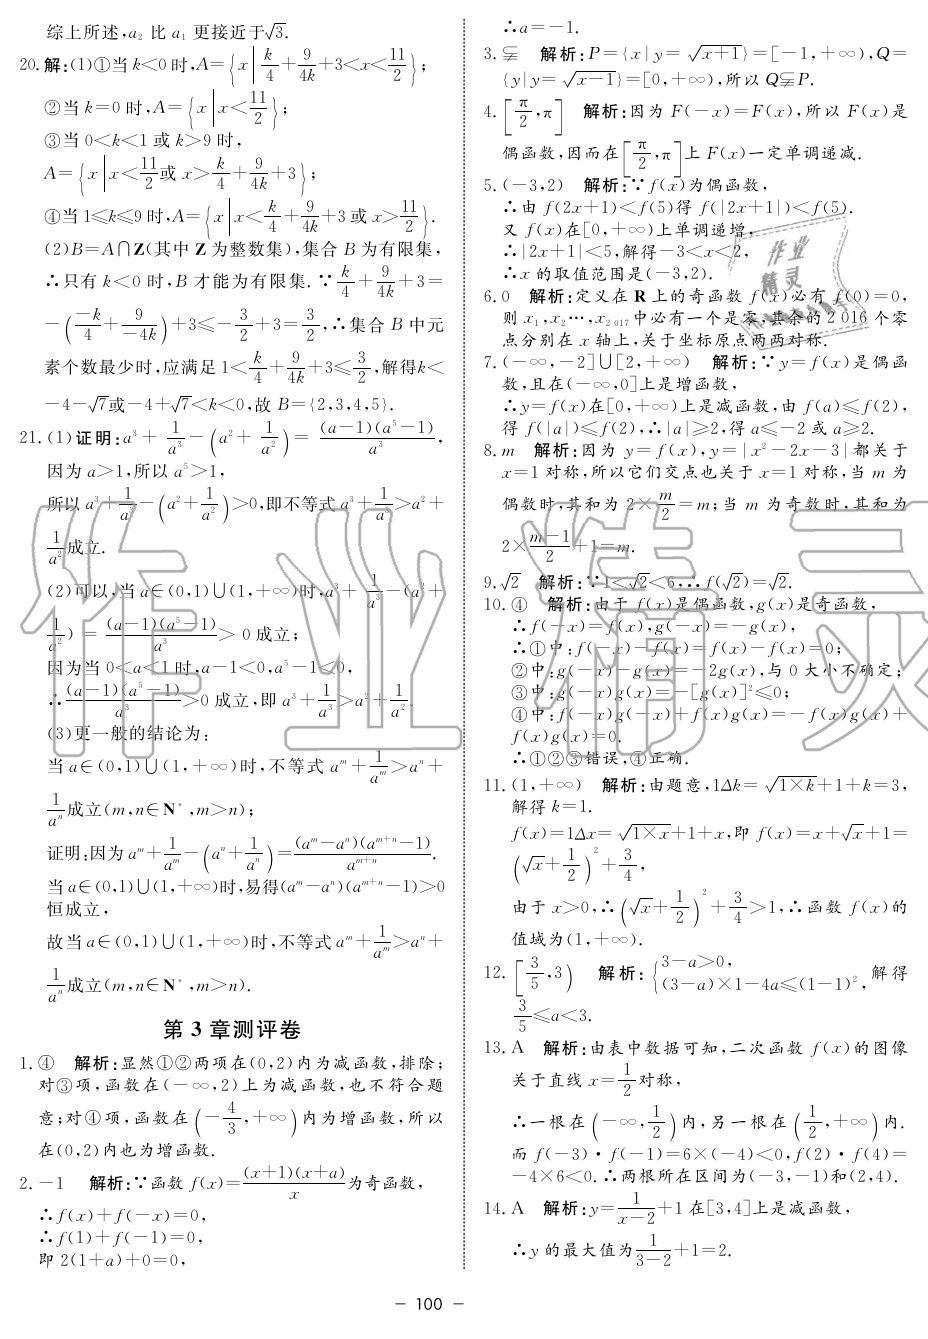 综上所述,a₂ 比 a₁ 更接近于√3.
20.解:(1)①当 k<0 时,A={x|k/4+9/(4k)+3<x<11/2};
②当 k=0 时,A={x|x<11/2};
③当 0<k<1 或 k>9 时,
A={x|x<11/2或 x>k/4+9/(4k)+3};
④当 1≤k≤9 时,A={x|x<k/4+9/(4k)+3 或 x>11/2}.
(2)B=A∩Z(其中 Z 为整数集),集合 B 为有限集,
∴只有 k<0 时,B 才能为有限集.∵k/4+9/(4k)+3=
-(-k/4+9/(-4k))+3≤-3/2+3=3/2,∴集合 B 中元
素个数最少时,应满足 1<k/4+9/(4k)+3≤3/2,解得k<
-4-√7或-4+√7<k<0,故 B={2,3,4,5}.
21.(1)证明:a³+1/a³-(a²+1/a²)=(a-1)(a⁵-1)/a³,
因为 a>1,所以 a⁵>1,
所以 a³+1/a³-(a²+1/a²)>0,即不等式 a³+1/a³>a²+
1/a²成立.
(2)可以,当 a∈(0,1)∪(1,+∞)时,a³+1/a³-(a²+
1/a²)=(a-1)(a⁵-1)/a³>0 成立;
因为当 0<a<1 时,a-1<0,a⁵-1<0,
∴(a-1)(a⁵-1)/a³>0 成立,即 a³+1/a³>a²+1/a².
(3)更一般的结论为:
当 a∈(0,1)∪(1,+∞)时,不等式 aᵐ+1/aᵐ>aⁿ+
1/aⁿ成立(m,n∈N*,m>n);
证明:因为 aᵐ+1/aᵐ-(aⁿ+1/aⁿ)=(aᵐ-aⁿ)(aᵐ⁺ⁿ-1)/aᵐ⁺ⁿ.
当 a∈(0,1)∪(1,+∞)时,易得(aᵐ-aⁿ)(aᵐ⁺ⁿ-1)>0
恒成立,
故当 a∈(0,1)∪(1,+∞)时,不等式 aᵐ+1/aᵐ>aⁿ+
1/aⁿ成立(m,n∈N*,m>n).
第 3 章测评卷
1.④ 解析:显然①②两项在(0,2)内为减函数,排除;
对③项,函数在(-∞,2)上为减函数,也不符合题
意;对④项,函数在(-4/3,+∞)内为增函数,所以
在(0,2)内也为增函数.
2.-1 解析:∵函数 f(x)=(x+1)(x+a)/x为奇函数,
∴f(x)+f(-x)=0,
∴f(1)+f(-1)=0,
即 2(1+a)+0=0,
∴a=-1.
3.⫋ 解析:P={x|y=√(x+1)}=[-1,+∞),Q=
{y|y=√(x-1)}=[0,+∞),所以 Q⫋P.
4.[π/2,π] 解析:因为 F(-x)=F(x),所以 F(x)是
偶函数,因而在[π/2,π]上 F(x)一定单调递减.
5.(-3,2) 解析:∵f(x)为偶函数,
∴由 f(2x+1)<f(5)得 f(|2x+1|)<f(5).
又 f(x)在[0,+∞)上单调递增,
∴|2x+1|<5,解得-3<x<2,
∴x 的取值范围是(-3,2).
6.0 解析:定义在 R 上的奇函数 f(x)必有 f(0)=0,
则 x₁,x₂…,x₂₀₁₇中必有一个是零,其余的 2 016 个零
点分别在 x 轴上,关于坐标原点两两对称.
7.(-∞,-2]∪[2,+∞) 解析:∵y=f(x)是偶函
数,且在(-∞,0]上是增函数,
∴y=f(x)在[0,+∞)上是减函数,由 f(a)≤f(2),
得 f(|a|)≤f(2),∴|a|≥2,得 a≤-2 或 a≥2.
8.m 解析:因为 y=f(x),y=|x²-2x-3|都关于
x=1 对称,所以它们交点也关于 x=1 对称,当 m 为
偶数时,其和为 2×m/2=m;当 m 为奇数时,其和为
2×(m-1)/2+1=m.
9.√2 解析:∵1<√2<6,∴f(√2)=√2.
10.④ 解析:由于 f(x)是偶函数,g(x)是奇函数,
∴f(-x)=f(x),g(-x)=-g(x),
∴①中:f(-x)-f(x)=f(x)-f(x)=0;
②中:g(-x)-g(x)=-2g(x),与 0 大小不确定;
③中:g(-x)g(x)=-[g(x)]²≤0;
④中:f(-x)g(-x)+f(x)g(x)=-f(x)g(x)+
f(x)g(x)=0.
∴①②③错误,④正确.
11.(1,+∞) 解析:由题意,1Δk=√(1×k)+1+k=3,
解得 k=1.
f(x)=1Δx=√(1×x)+1+x,即 f(x)=x+√x+1=
(√x+1/2)²+3/4,
由于 x>0,∴(√x+1/2)²+3/4>1,∴函数 f(x)的
值域为(1,+∞).
12.[3/5,3) 解析:{3-a>0, (3-a)×1-4a≤(1-1)², 解得
3/5≤a<3.
13.A 解析:由表中数据可知,二次函数 f(x)的图像
关于直线 x=1/2对称,
∴一根在(-∞,1/2)内,另一根在(1/2,+∞)内.
而 f(-3)·f(-1)=6×(-4)<0,f(2)·f(4)=
-4×6<0.∴两根所在区间为(-3,-1)和(2,4).
14.A 解析:y=1/(x-2)+1 在[3,4]上是减函数,
∴y 的最大值为1/(3-2)+1=2.
- 100 -
作业精灵
作业
精灵